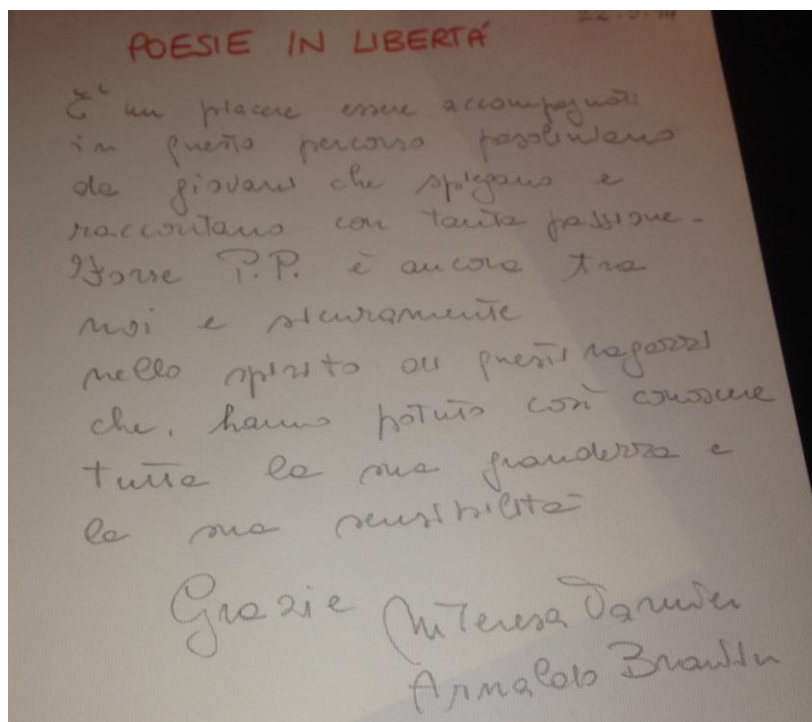 22.3.14
POESIE IN LIBERTÁ
E' un piacere essere accompagnati
in questo percorso pasoliniano
da giovani che spiegano e
raccontano con tanta passione.
Forse P.P. è ancora tra
noi e sicuramente
nello spirito di questi ragazzi
che, hanno potuto così conoscere
tutta la sua grandezza e
la sua sensibilità
Grazie M Teresa
Arnaldo